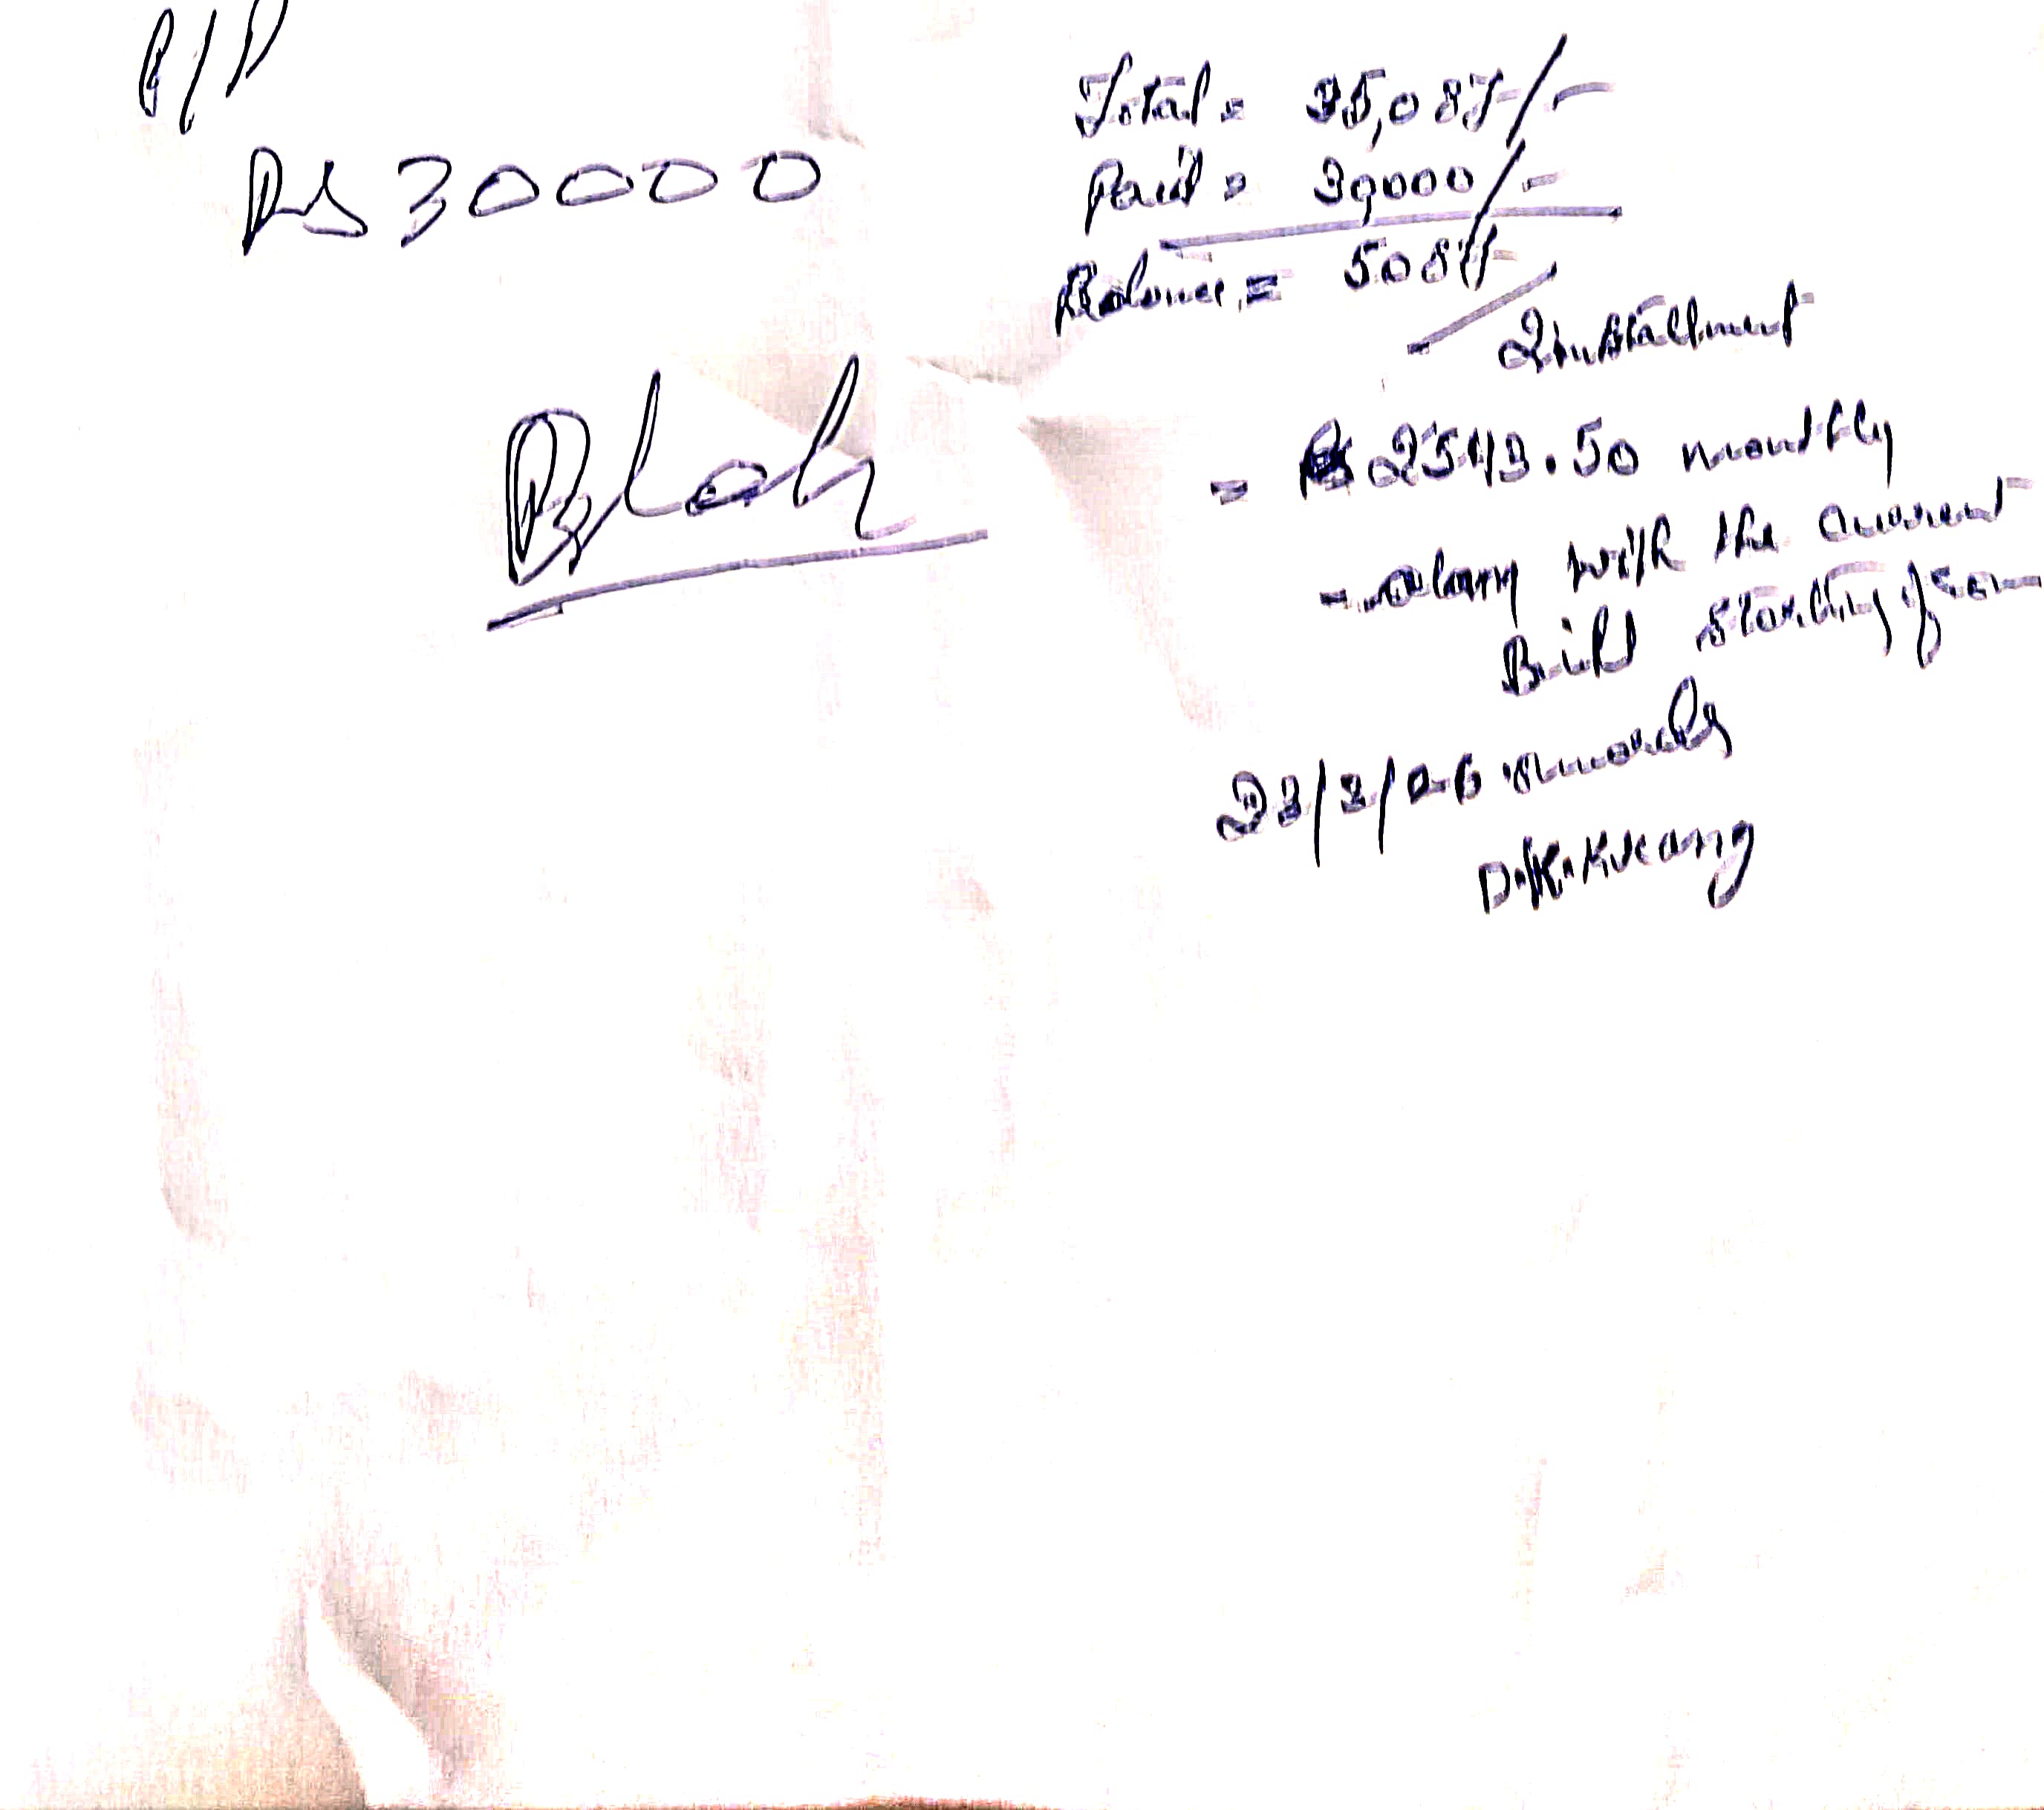 P/P
Rs 30000
Total = 35,087/-
Paid = 30,000/-
Balance = 5087/-
2 installment
= Rs 2543.50 monthly
- along with the current
Bill starting from
23/3/
D.K.